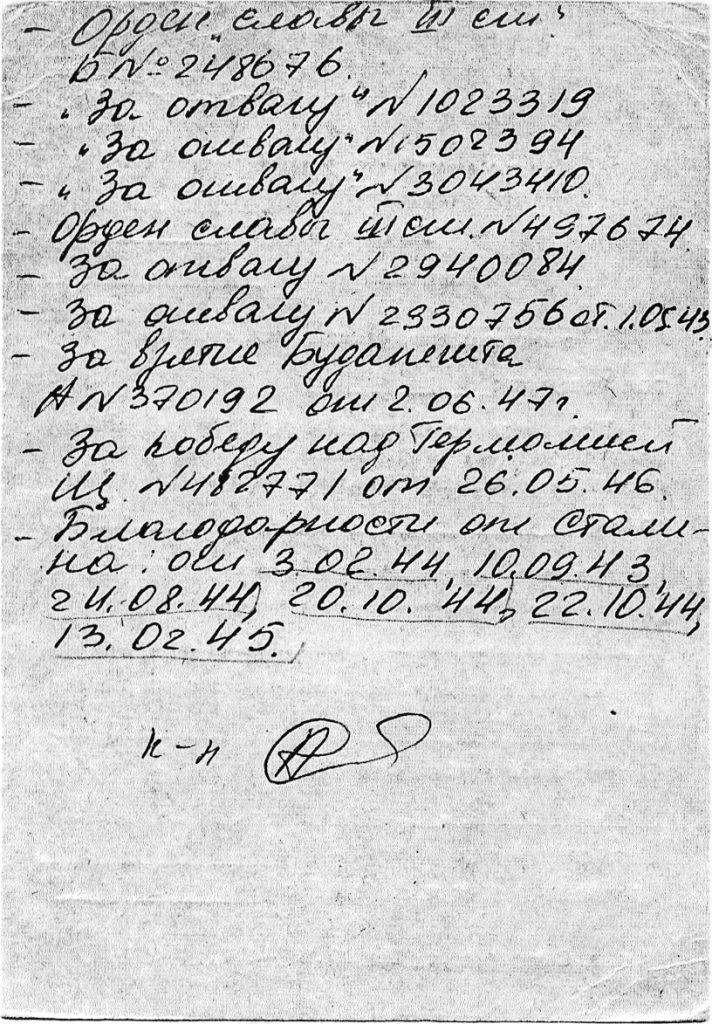 - Орден „славы III ст."
Б № 248676.
- „За отвагу" N 1023319
- „За отвагу" N 1502394
- „За отвагу" N 3043410.
- Орден славы III ст. N 497674.
- За отвагу N 2940084.
- За отвагу N 2330756 от. 1.05.43.
- За взятие Будапешта
А N 370192 от 2.06.47г.
- За победу над Германией
Щ N 482771 от 26.05.46.
- Благодарности от Стали-
на: от 3.02.44, 10.09.43,
24.08.44, 20.10.44, 22.10.44,
13.02.45.
к-н